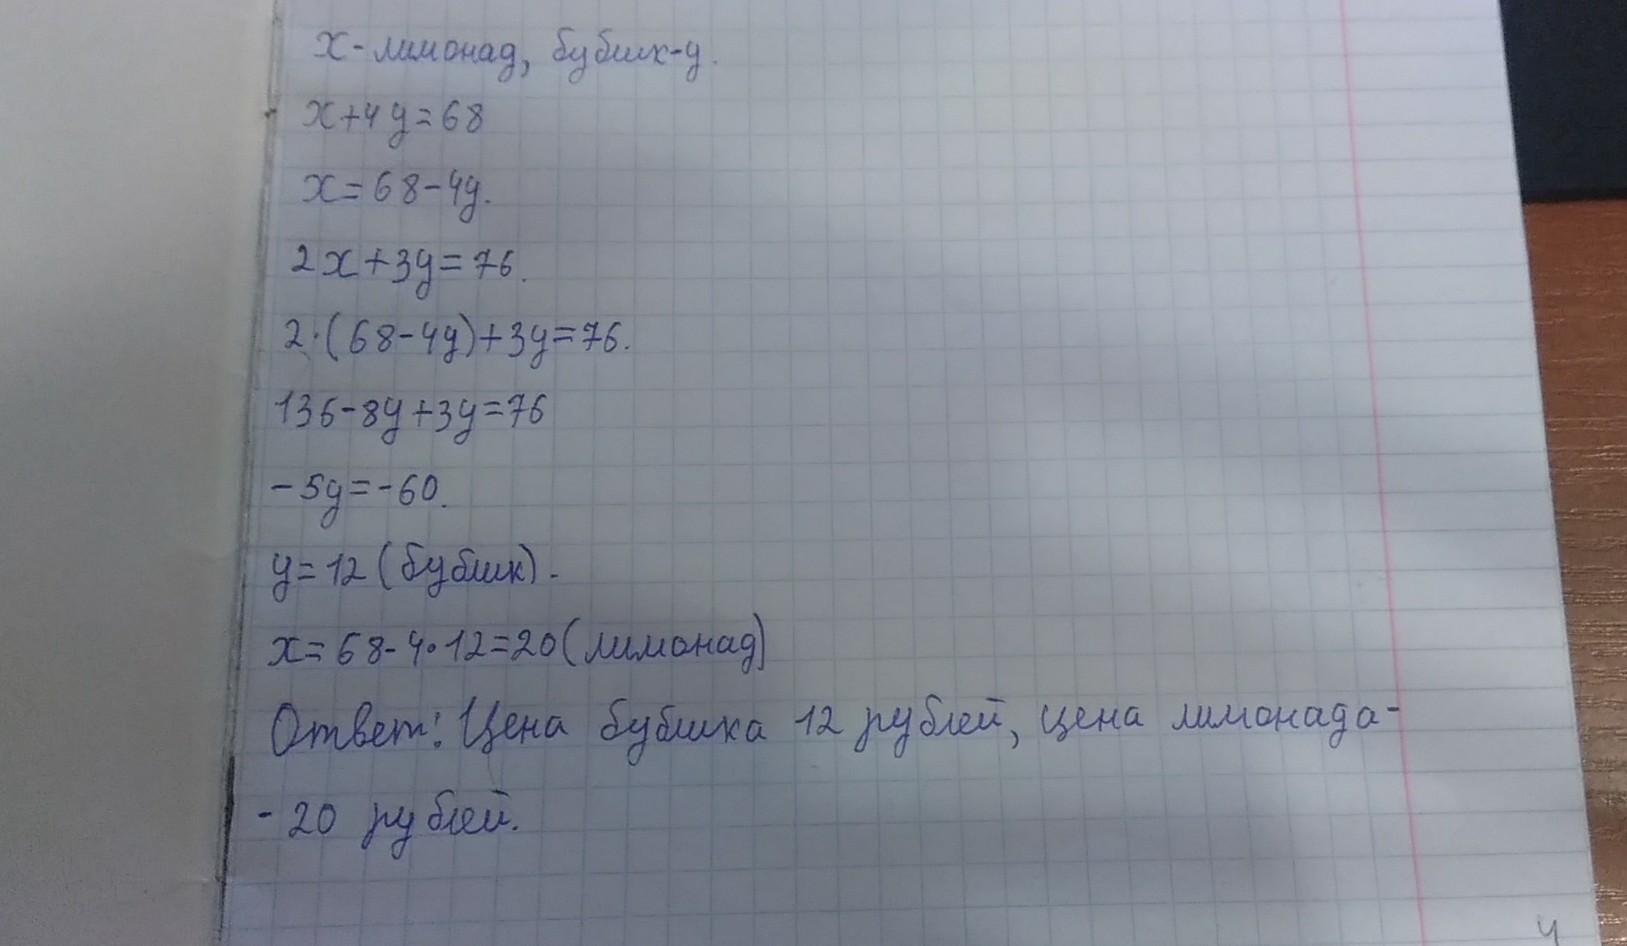 х-лимонад, бублик-y.
x+4y=68
x=68-4y.
2x+3y=76.
2·(68-4y)+3y=76.
136-8y+3y=76
-5y=-60.
y=12(бублик).
x=68-4·12=20(лимонад)
Ответ: Цена бублика 12 рублей, цена лимонада-
-20 рублей.